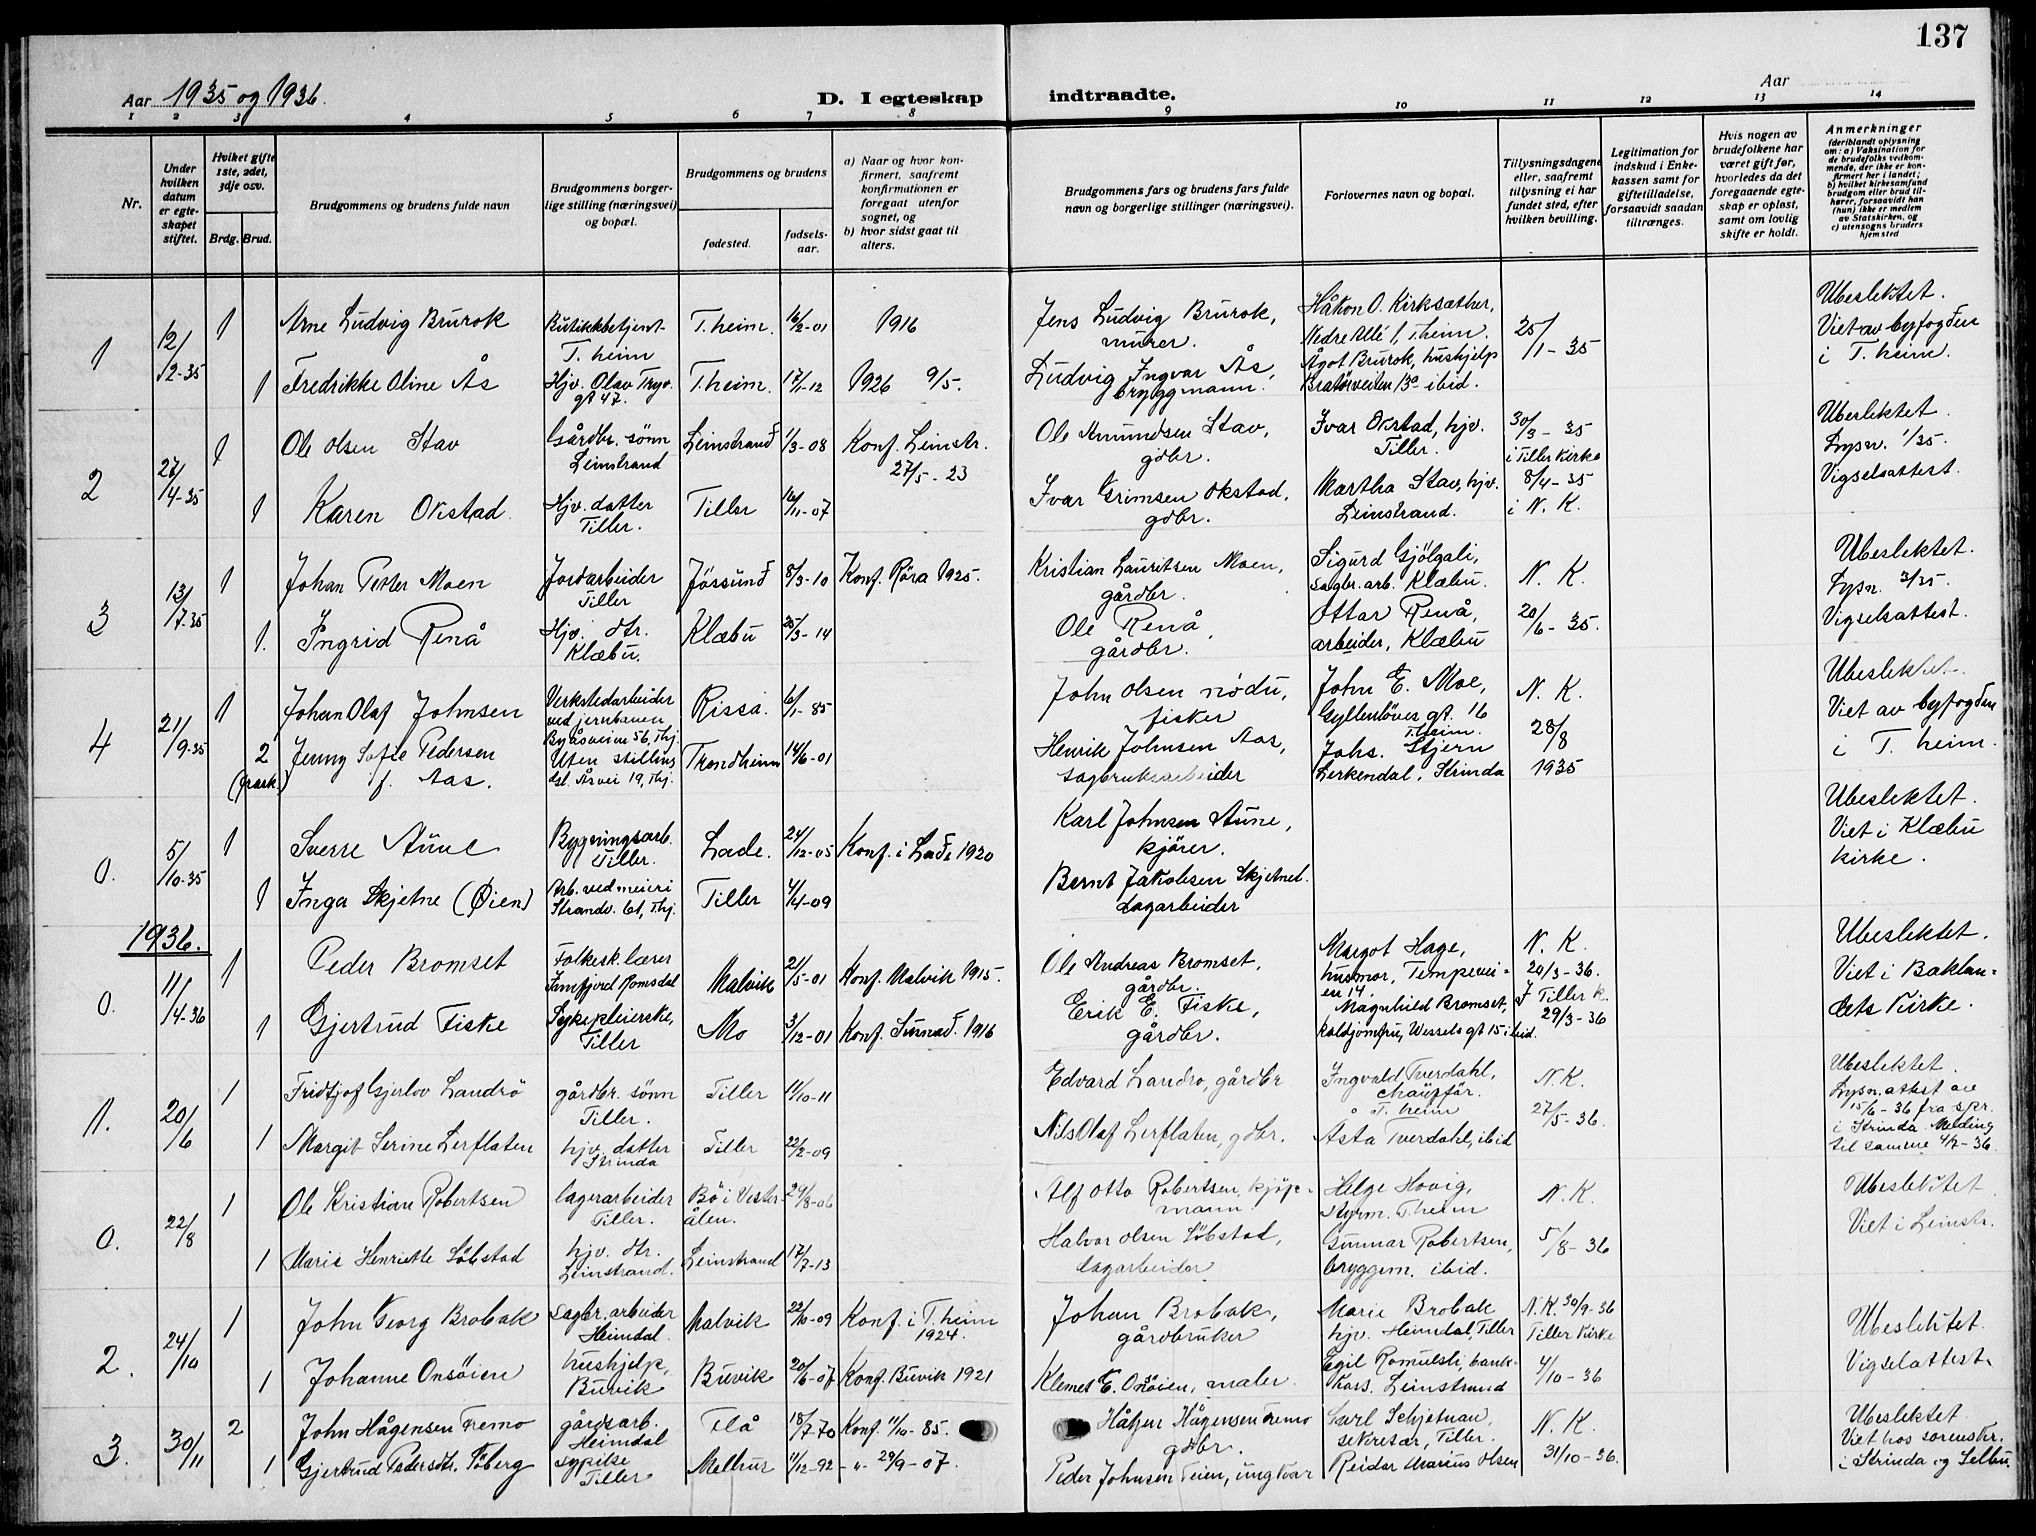 137
Aar 1935 og 1936.
D. I egteskap indtraadte.
Aar
1 2 3 4 5 6 7 8 9 10 11 12 13 14
Nr.
Under hvilken datum er egteskapet stiftet.
Hviket gifte 1ste, 2det, 3dje osv.
Brdg. Brud.
Brudgommens og brudens fulde navn
Brudgommens borgerlige stilling (næringsvei) og bopæl.
Brudgommens og brudens
fødested.
fødselsaar.
a) Naar og hvor konfirmert, saafremt konfirmationen er foregaat utenfor sognet, og
b) hvor sidst gaat til alters.
Brudgommens fars og brudens fars fulde navn og borgerlige stillinger (næringsvei).
Forlovernes navn og bopæl.
Tillysningsdagene eller, saafremt tillysning ei har fundet sted, efter hvilken bevilling.
Legitimation for indskud i Enkekassen samt for giftetilladelse, forsaavidt saadan tiltrænges.
Hvis nogen av brudefolkene har været gift før, hvorledes da det foregaaende egteskap er opløst, samt om lovlig skifte er holdt.
Anmerkninger
(deriblandt oplysning om: a) Vaksination for de brudefolks vedkommende, der ikke er konfirmert her i landet; b) hvilket kirkesamfund brudgom eller brud tilhører, forsaavidt han (hun) ikke er medlem av Statskirken, og c) utensogns bruders hjemsted
1 12/2-35
1 Arne Ludvig Brurok Butikkbetjent T.heim T.heim. 16/2-01 1916 Jens Ludvig Brurok, murer. Håkon O. Kirksæther, Nedre Allé 1, T.heim. 25/1-35 Ubeslektet. Viet av byfogden i T.heim.
1 Fredrikke Oline Ås Hjv. Olav Tryv. gt 47. T.heim. 1926 9/5. Ludvig Ingvar Ås, bryggmann. Ågot Brurok, hushjelp ibid.
2 27/4-35
1 Ole Olsen Stav Gårdbr. sønn Leinstrand Leinstrand 1/3-08 Konf. Leinstr. 27/5-23 Ole Amundsen Stav, gdbr. Ivar Okstad, hjv. Tiller. 30/3-35 i Tiller kirke Ubeslektet. Lysn. 1/35. Vigselsattest.
1 Karen Okstad. Hjv. datter Tiller. Tiller 16/11-07 Ivar Grimsen Okstad, gdbr. Martha Stav, hjv. Leinstrand. 8/4-35 i N. K.
3 13/7-35
1 Johan Petter Moen Jordarbeider Tiller Jössund 8/3-10 Konf. Röra 1925. Kristian Lauritsen Moen, gårdbr. Sigurd Gjölgali, sagbr. arb. Klæbu. N. K. Ubeslektet. Lysn. 3/35. Vigselsattest.
1. Ingrid Renå Hjv. dtr. Klæbu. Klæbu 25/3-14 Ole Renå, gårdbr. Ottar Renå, arbeider, Klæbu 20/6-35.
4 21/9-35
1 Johan Olaf Johnsen Verkstedarbeider ved jernbanen Byåsveien 56, Thj. Rissa. 6/1-85 John Olsen Rödu, fisker John E. Moe, Gyllenlöves gt. 16 T.heim. N. K. Ubeslektet. Viet av byfogden i T.heim.
2 (frask.) Jenny Sofie Pedersen f. Aas. Uten stilling Åsvei 19, Thj. Trondheim 14/6-01 Henrik Johnsen Aas, sagbruksarbeider Johs. Stjern Lerkendal, Strinda 28/8 1935
0. 5/10-35
1 Sverre Aune Bygningsarb. Tiller. Lade. 24/12-05 Konf. i Lade 1920 Karl Johnsen Aune, kjörer. Ubeslektet. Viet i Klæbu kirke.
1 Inga Skjetne (Øien) Arb. ved meieri Strandv. 61, Thj. Tiller 4/4-09 Bernt Jakobsen Skjetnel. dagarbeider
1936.
0. 11/4-36
1 Peder Bromset Folkesk.lærer Innfjord Romsdal Malvik 21/5-01 Konf. Malvik 1915. Ole Andreas Bromset, gårdbr. Margot Hage, husmor, Tempeveien 14. N. K. 20/3-36. Ubeslektet. Viet i Baklandets Kirke.
1 Gjertrud Fiske Sykepleierske, Tiller Mo 3/12-01 Konf. Surnad. 1916 Erik E. Fiske, gårdbr. Magnhild Bromset, koldjomfru, Wessels gt 15 ibid. I Tiller k. 29/3-36
1. 20/6
1 Fridtjof Gjerlov Landrö gårdbr. sönn Tiller. Tiller 11/10-11 Edvard Landrö, gårdbr Ingvald Tverdahl, chaufför. T.heim N.K. Ubeslektet. Lysn. attest av 15/6-36 fra spr. i Strinda. Melding til samme 4/7-36.
1 Margit Serine Lerflaten hjv. datter Strinda Tiller 22/2-09 Nils Olaf Lerflaten, gdbr. Åsta Tverdahl, ibid 27/5-36.
0. 22/8
1 Ole Kristian Robertsen lagerarbeider Tiller. Bö i Vesterålen. 29/8-06 Alf Otto Robertsen, kjöpmann Helge Hovig, styrm. T.heim N. K. Ubeslektet Viet i Leinstr.
1 Marie Henriette Löbstad hjv. dtr. Leinstrand. Leinstrand 17/7-13 Halvor Olsen Löbstad, dagarbeider Gunnar Robertsen, bryggem. ibid. 5/8-36
2. 24/10
1 John Georg Brobak sagbr. arbeider Heimdal. Malvik 22/10-09 Konf. i T.heim 1924. Johan Brobak, gårdbruker Marie Brobak hjv. Heimdal, Tiller N. K. 30/9-36 Tiller Kirke Ubeslektet. Vigselattest.
1 Johanne Onsöien hushjelp, Buvik Buvik 20/6-07 Konf. Buvik 1921 Klemet E. Onsöien, maler. Egil Romulsli, bankkass. Leinstrand 4/10-36
3. 30/11
2 John Hågensen Tremo gårdsarb. Heimdal Flå 18/7-70 Konf. 11/10-85. Håken Hågensen Tremo gdbr. Carl Schjetnan, sekretær, Tiller. N. K. Ubeslektet Viet hos sorenskr. i Strinda og Selbu.
1 Gjertrud Pedersdtr. Töberg sypike Tiller Melhus 11/12-92 -"- 29/9-07. Peder Johnsen Teien, ungkar Reidar Marius Olsen 31/10-36.